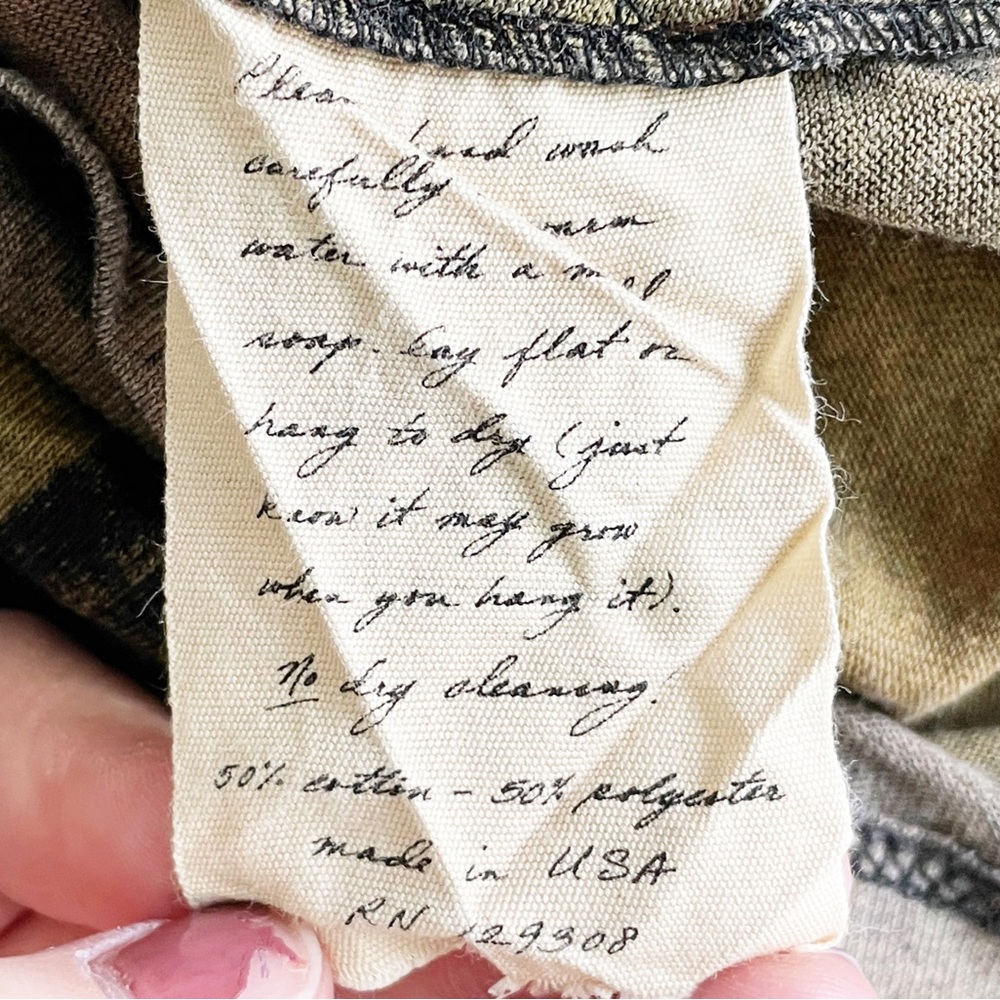 Please
hand wash
carefully
warm
water with a mild
soap. Lay flat or
hang to dry (just
know it may grow
when you hang it).
No dry cleaning.
50% cotton - 50% polyester
made in USA
RN 129308